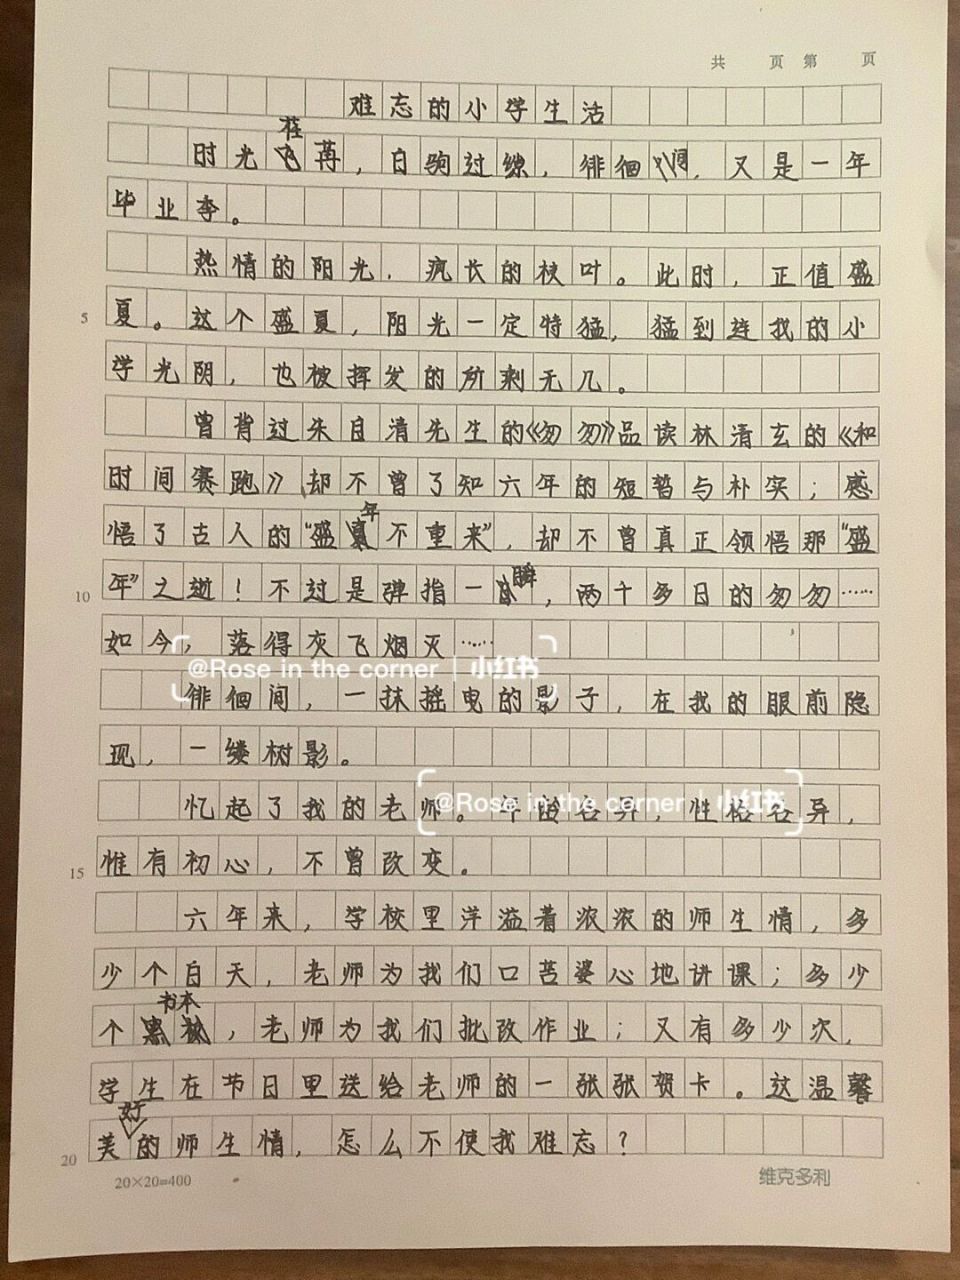 共 页 第 页
难忘的小学生活
时光荏苒，白驹过缐，徘徊间，又是一年
毕业季。
热情的阳光，疯长的枝叶。此时，正值盛
5 夏。这个盛夏，阳光一定特猛，猛到连我的小
学光阴，也被挥发的所剩无几。
曾背过朱自清先生的《匆匆》品读林清玄的《和
时间赛跑》，却不曾了知六年的短暂与补实；感
悟了古人的“盛年不重来”，却不曾真正领悟那“盛
10 年”之逝！不过是弹指一瞬，两千多日的匆匆……
如今，落得灰飞烟灭……
@Rose in the corner | 小红书
徘徊间，一抹摇曳的影子，在我的眼前隐
现，一缕树影。
忆起了我的老师。年龄各异，性格各异，
@Rose in the corner | 小红书
15 惟有初心，不曾改变。
六年来，学校里洋溢着浓浓的师生情，多
少个白天，老师为我们口苦婆心地讲课；多少
个书本，老师为我们批改作业；又有多少次，
学生在节日里送给老师的一张张贺卡。这温馨
20 美好的师生情，怎么不使我难忘？
20×20=400 维克多利